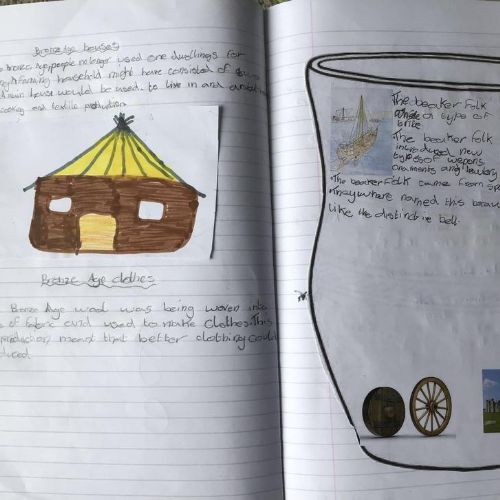 Bronze Age houses
Bronze Age people no longer used one dwellings for
household might have consisted of
house would be used to live in and
cooking and textile production.
Bronze Age clothes
Bronze Age wool was being woven into
of fabric and used to make clothes. This
production meant that better clothing could
duced
The beaker folk
a type of
tribe
The beaker folk
introduced new
types of weapons
ornaments and
The beaker folk came from
They where named this
like the distinctive bell